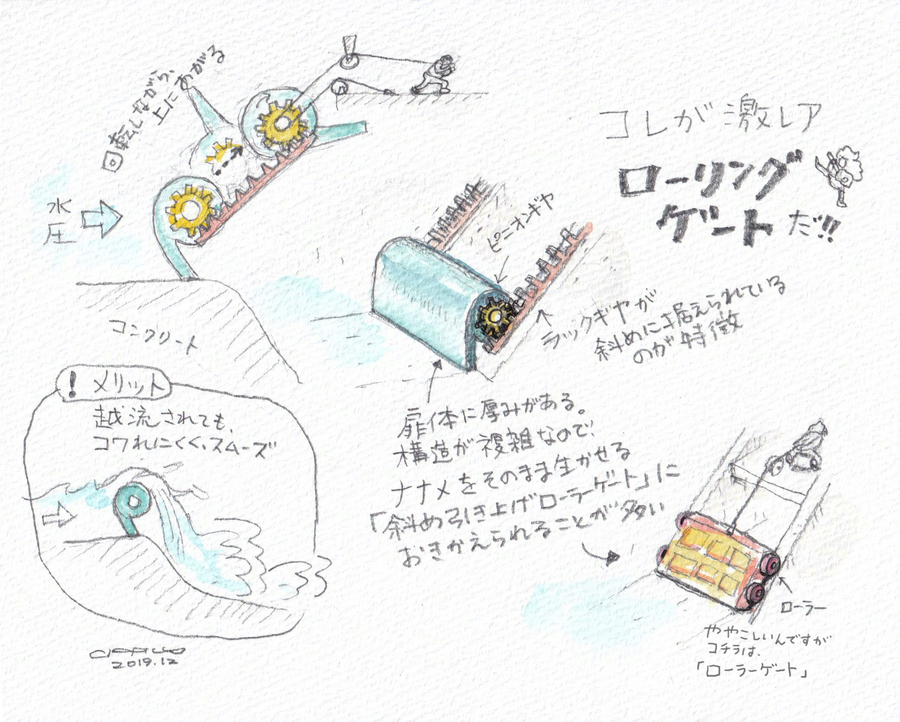 回転しながら、
上にあがる
コレが激レア
ローリング
ゲートだ!!
水
圧
ピニオンギヤ
ラックギヤが
斜めに据えられている
のが特徴
コンクリート
! メリット
越流されても、
コワれにくく、スムーズ
扉体に厚みがある。
構造が複雑なので、
ナナメをそのまま生かせる
「斜め引き上げローラーゲート」に
おきかえられることが多い
ローラー
ややこしいんですが
コチラは、
「ローラーゲート」
2019.12